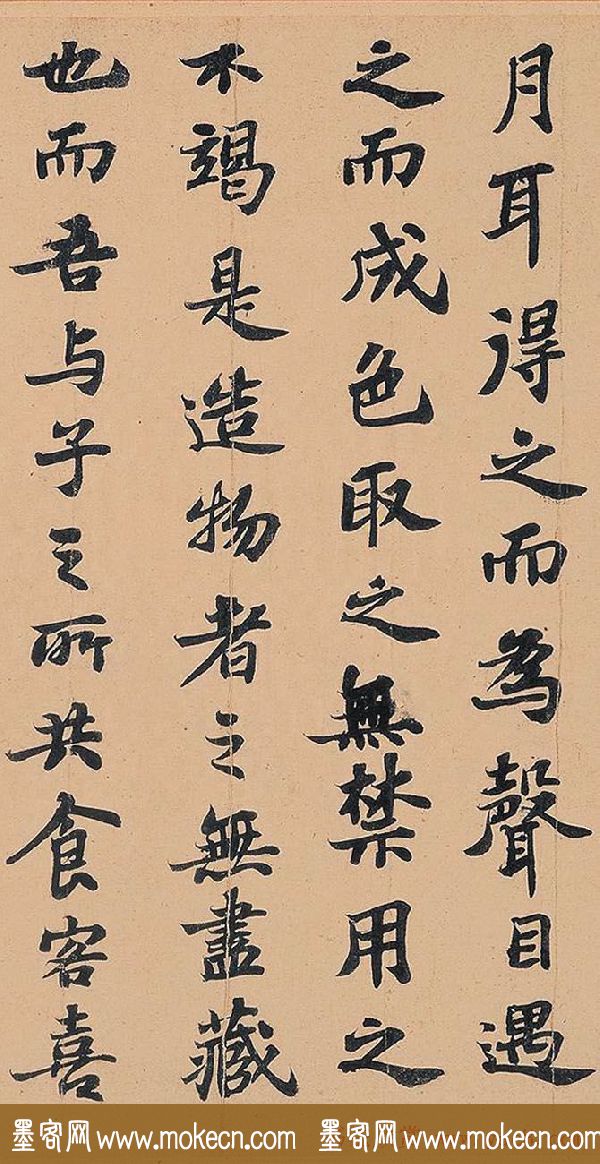 月耳得之而為聲目遇
之而成色取之無禁用之
不竭是造物者之無盡藏
也而吾与子之所共食客喜
墨客网 www.mokecn.com 墨客网 www.mokecn.com